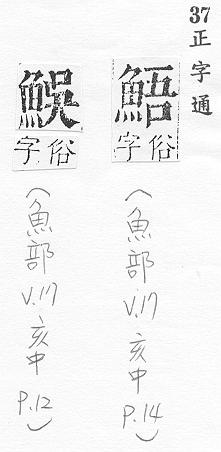 37 正字通
鯃
俗字
(魚部 V.17 亥中 P.14)
俗字
(魚部 V.17 亥中 P.12)